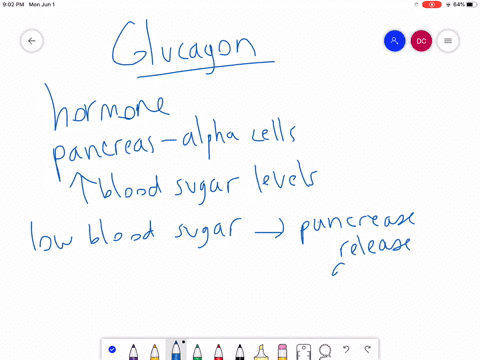 9:02 PM Mon Jun 1
64%
DC
Glucagon
hormone
pancreas - alpha cells
↑ blood sugar levels
low blood sugar → puncrease
release